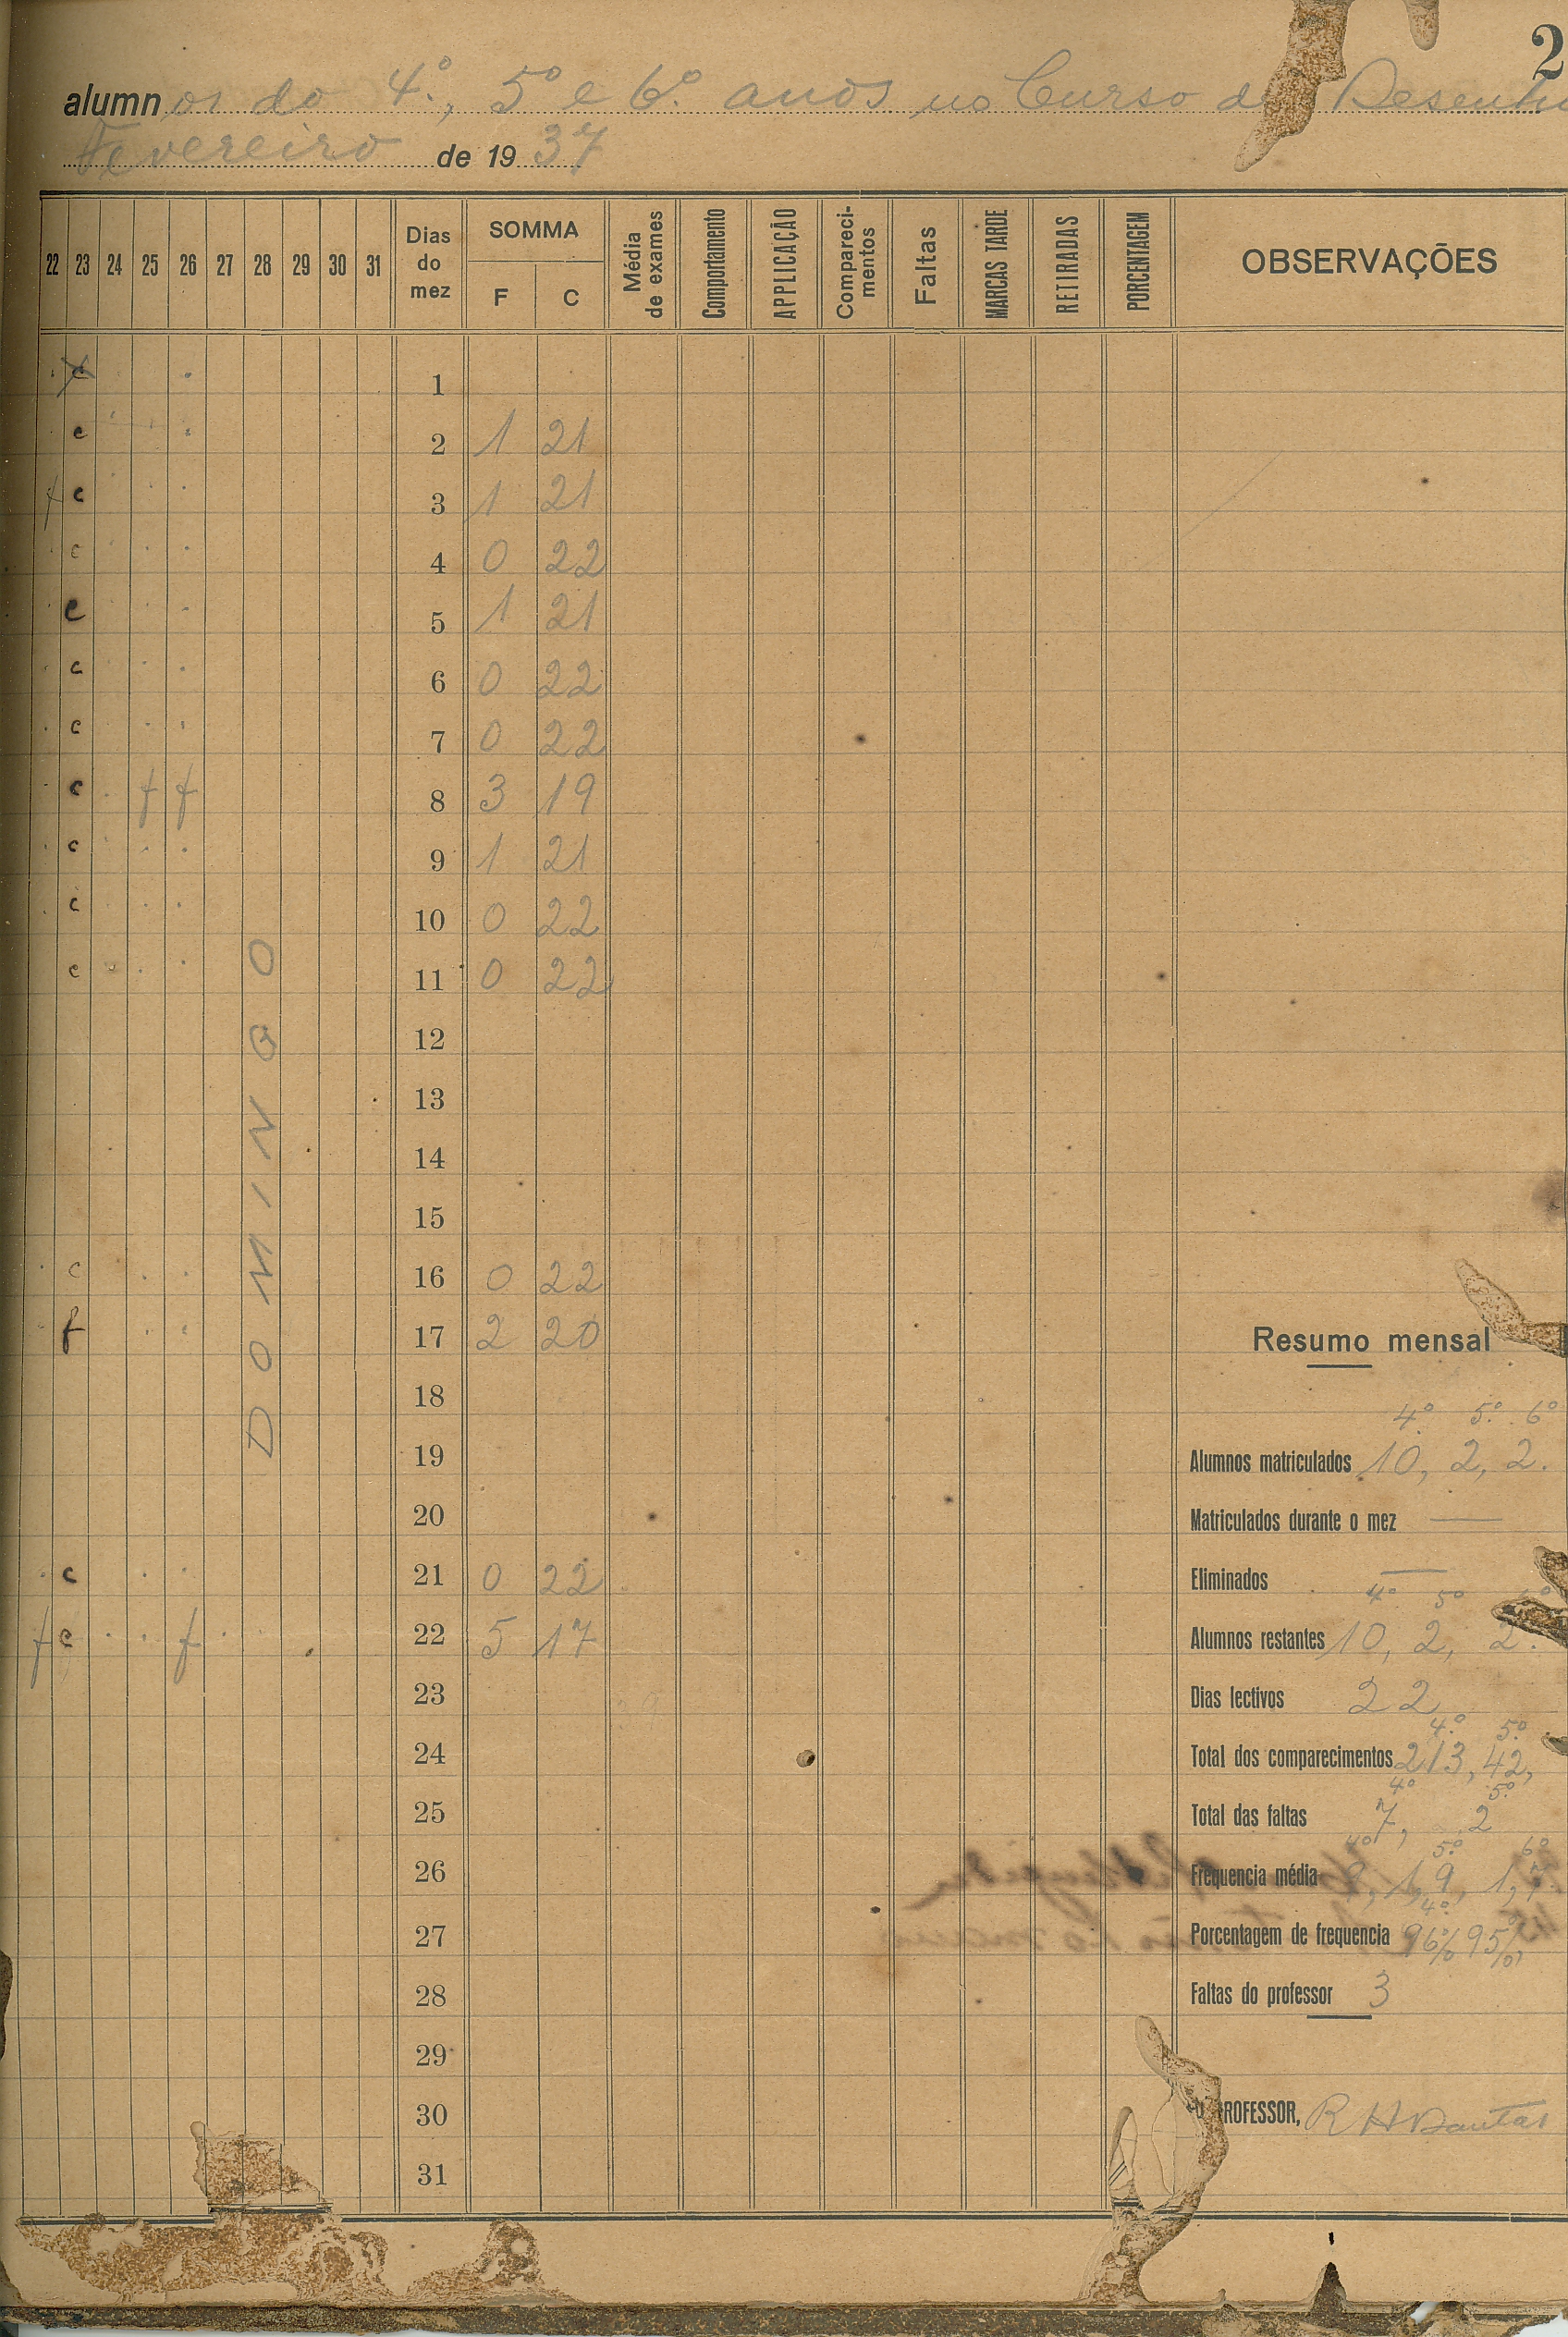 2
alumnos do 4.º, 5º e 6.º anos no Curso de Desenho
Fevereiro de 1937
22 23 24 25 26 27 28 29 30 31 Dias do mez SOMMA F C Média de exames Comportamento APPLICAÇÃO Compareci-mentos Faltas MARCAS TARDE RETIRADAS PORCENTAGEM OBSERVAÇÕES
1
c 2 1 21
f c 3 1 21
c 4 0 22
c 5 1 21
c 6 0 22
c 7 0 22
c f f 8 3 19
c 9 1 21
c 10 0 22
c 11 0 22
DOMINGO
12
13
14
15
c 16 0 22
f 17 2 20 Resumo mensal
18 4º 5º 6º
19 Alumnos matriculados 10, 2, 2.
20 Matriculados durante o mez —
c 21 0 22 Eliminados —
4º 5º 6º
f c f 22 5 17 Alumnos restantes 10, 2, 2.
23 Dias lectivos 22
4.º 5.º
24 Total dos comparecimentos 213, 42,
4º 5º
25 Total das faltas 7, 2
4º 5º 6º
26 Frequencia média 9, 1,9, 1,7.
4º
27 Porcentagem de frequencia 96% 95%
28 Faltas do professor 3
29
30 O PROFESSOR, R H Dantas
31